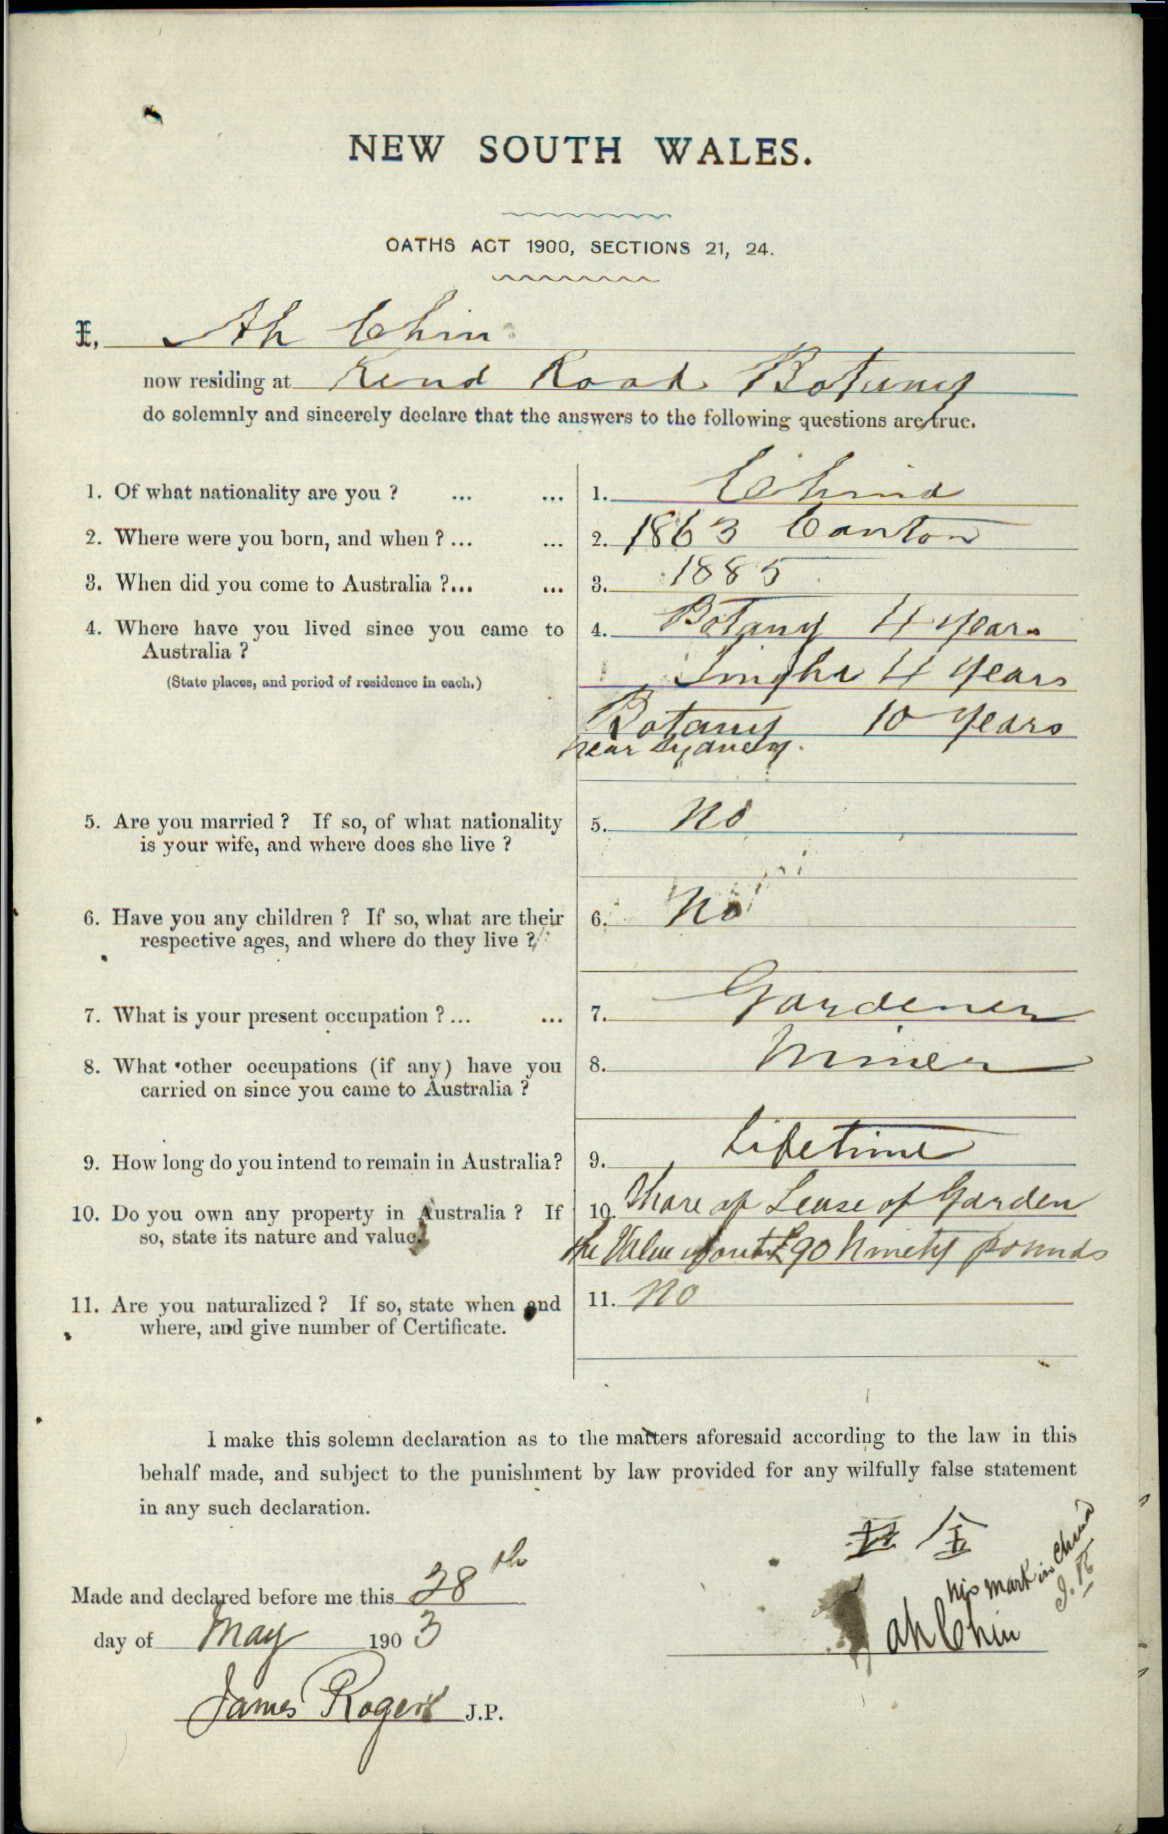 NEW SOUTH WALES.
OATHS ACT 1900, SECTIONS 21, 24.
I, Ah Chin
now residing at Kend Road Botany
do solemnly and sincerely declare that the answers to the following questions are true.
1. Of what nationality are you ? ... ... 1. China
2. Where were you born, and when ? ... ... 2. 1863 Canton
3. When did you come to Australia ?... ... 3. 1885
4. Where have you lived since you came to 4. Botany 4 years
Australia ?
(State places, and period of residence in each.) Tingha 4 years
Botany 10 years
near Sydney.
5. Are you married ? If so, of what nationality 5. No
is your wife, and where does she live ?
6. Have you any children ? If so, what are their 6. No
respective ages, and where do they live ?
7. What is your present occupation ? ... ... 7. Gardener
8. What other occupations (if any) have you 8. Miner
carried on since you came to Australia ?
9. How long do you intend to remain in Australia? 9. Lifetime
10. Do you own any property in Australia ? If 10. Share of Lease of Garden
so, state its nature and value. the Value about £90 Ninety pounds
11. Are you naturalized ? If so, state when and 11. No
where, and give number of Certificate.
I make this solemn declaration as to the matters aforesaid according to the law in this
behalf made, and subject to the punishment by law provided for any wilfully false statement
in any such declaration.
金
his mark in China
J.R
Made and declared before me this 28th
day of May 1903
ah Chin
James Rogers J.P.